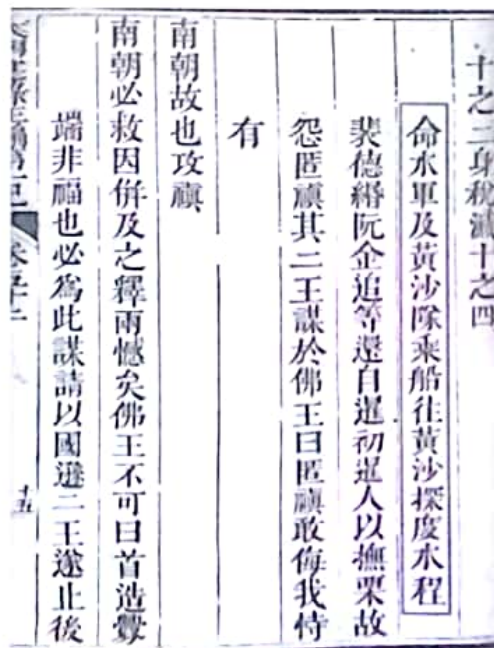 十之二身稅減十之四
命水軍及黃沙隊乘船往黃沙探度水程
裴德緡阮企追等還自暹初暹人以撫罙故
怨匿禛其二王謀於佛王曰匿禛敢侮我恃
有
南朝故也攻禛
南朝必救因併及之釋兩憾矣佛王不可曰首造釁
端非福也必為此謀請以國遜二王遂止後
十五